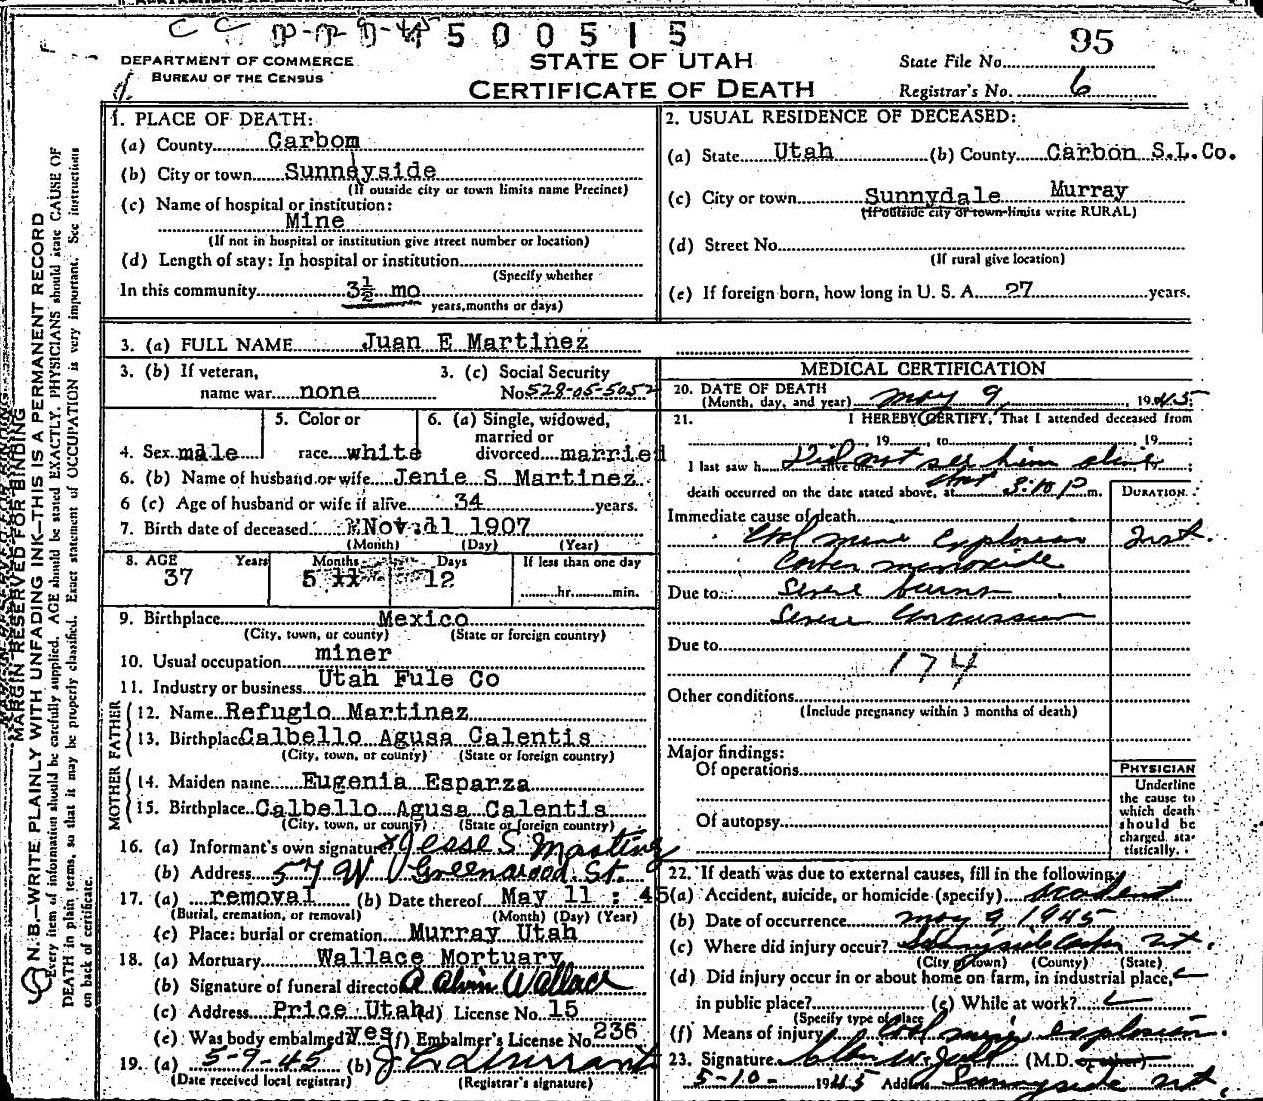 500515
95
DEPARTMENT OF COMMERCE
BUREAU OF THE CENSUS
STATE OF UTAH
CERTIFICATE OF DEATH
State File No.
Registrar's No. 6
1. PLACE OF DEATH:
(a) County Carbom
(b) City or town Sunndyside
(If outside city or town limits name Precinct)
(c) Name of hospital or institution:
Mine
(If not in hospital or institution give street number or location)
(d) Length of stay: In hospital or institution
(Specify whether
In this community 3½ mo
years, months or days)
2. USUAL RESIDENCE OF DECEASED:
(a) State Utah (b) County Carbon S.L.Co.
(c) City or town Sunnydale Murray
(If outside city or town limits write RURAL)
(d) Street No.
(If rural give location)
(e) If foreign born, how long in U. S. A. 27 years.
3. (a) FULL NAME Juan E Martinez
3. (b) If veteran,
name war none
3. (c) Social Security
No. 528-05-5052
4. Sex male
5. Color or
race white
6. (a) Single, widowed,
married or
divorced married
6. (b) Name of husband or wife Jenie S Martinez
6 (c) Age of husband or wife if alive 34 years.
7. Birth date of deceased Nov 11 1907
(Month) (Day) (Year)
8. AGE Years Months Days If less than one day
37 5 12 hr. min.
9. Birthplace Mexico
(City, town, or county) (State or foreign country)
10. Usual occupation miner
11. Industry or business Utah Fule Co
FATHER
12. Name Refugio Martinez
13. Birthplace Calbello Agusa Calentis
(City, town, or county) (State or foreign country)
MOTHER
14. Maiden name Eugenia Esparza
15. Birthplace Calbello Agusa Calentis
(City, town, or county) (State or foreign country)
16. (a) Informant's own signature Jesse S. Martinez
(b) Address 57 W Greenwood St.
17. (a) removal (b) Date thereof May 11 : 45
(Burial, cremation, or removal) (Month) (Day) (Year)
(c) Place: burial or cremation Murray Utah
18. (a) Mortuary Wallace Mortuary
(b) Signature of funeral director A Alvin Wallace
(c) Address Price Utah (d) License No. 15
(e) Was body embalmed? yes (f) Embalmer's License No. 236
19. (a) 5-9-45 (b) J C Durrant
(Date received local registrar) (Registrar's signature)
MEDICAL CERTIFICATION
20. DATE OF DEATH
(Month, day, and year) May 9, 1945
21. I HEREBY CERTIFY, That I attended deceased from
, 19 , to , 19 ;
I last saw h Did not see him alive ;
death occurred on the date stated above, at 3:10 P m.
DURATION
Immediate cause of death
Coal mine Explosion Inst.
Carbon monoxide
Due to Severe burns
Severe Concussion
Due to
174
Other conditions
(Include pregnancy within 3 months of death)
Major findings:
Of operations
Of autopsy
PHYSICIAN
Underline
the cause to
which death
should be
charged sta-
tistically.
22. If death was due to external causes, fill in the following:
(a) Accident, suicide, or homicide (specify) accident
(b) Date of occurrence May 9 1945
(c) Where did injury occur? Sunnyside Carbon Ut.
(City or town) (County) (State)
(d) Did injury occur in or about home on farm, in industrial place,
in public place? (e) While at work?
(Specify type of place)
(f) Means of injury Coal mine explosion.
23. Signature (M.D. or other)
5-10- 1945 Address Sunnyside Ut.
MARGIN RESERVED FOR BINDING
N. B.—WRITE PLAINLY WITH UNFADING INK—THIS IS A PERMANENT RECORD
Every item of information should be carefully supplied. AGE should be stated EXACTLY. PHYSICIANS should state CAUSE OF
DEATH in plain terms, so that it may be properly classified. Exact statement of OCCUPATION is very important. See instructions
on back of certificate.